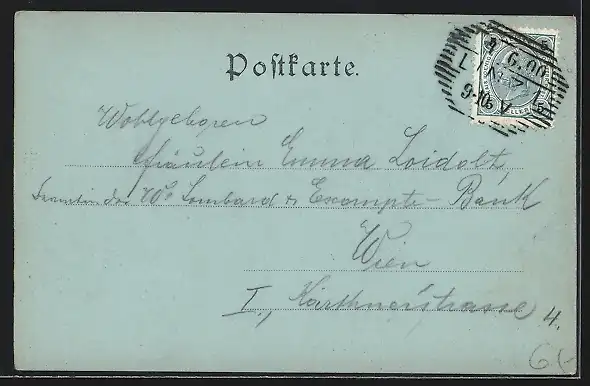 Postkarte.
6.00
9-10
V
Wohlgeboren
Fräulein Emma Loidolt,
Beamtin der Wr. Lombard & Escompte-Bank
Wien
I., Kärthnerstrasse 4.